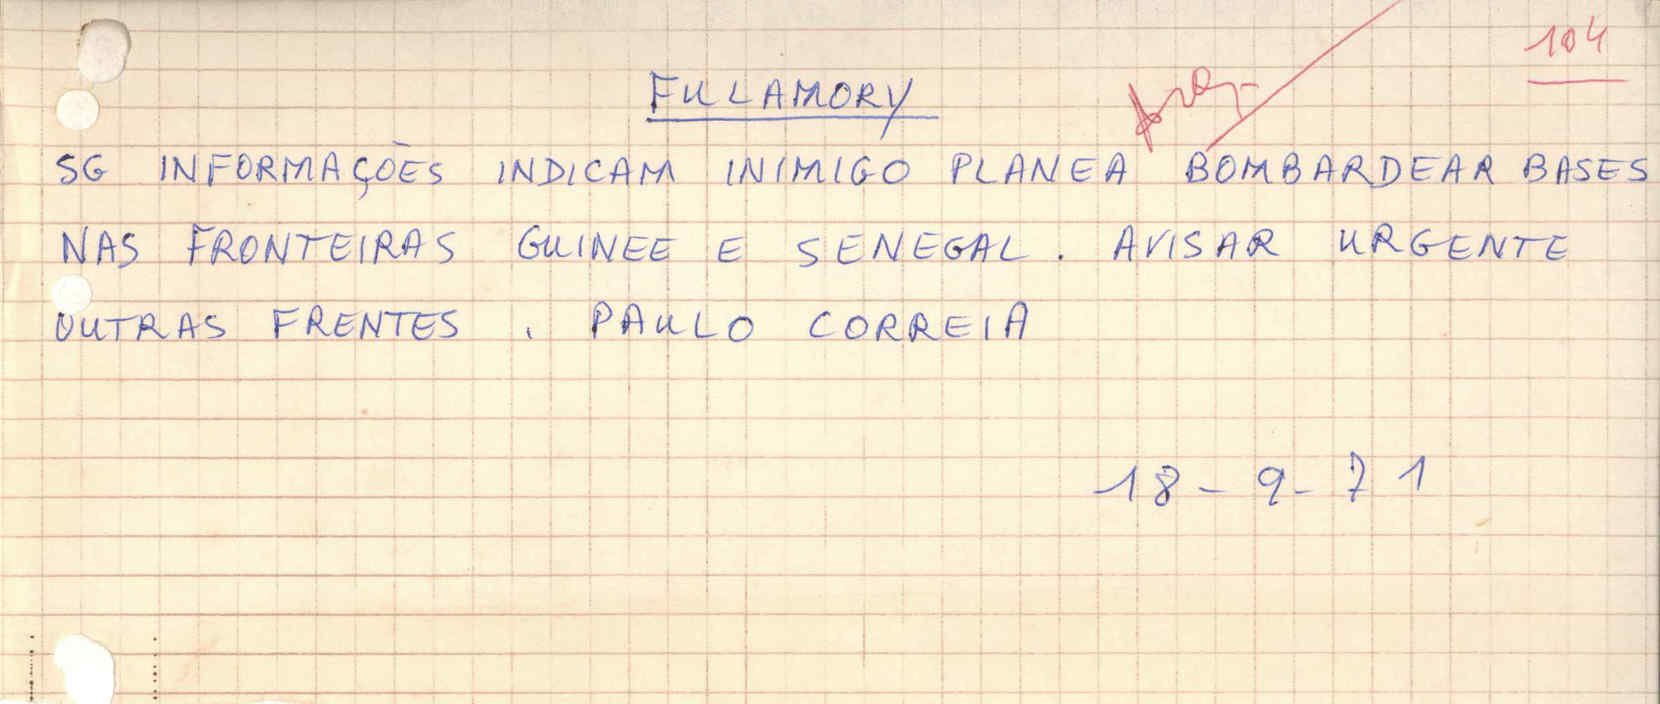 104
FULLAMORY
SG INFORMAÇÕES INDICAM INIMIGO PLANEA BOMBARDEAR BASES
NAS FRONTEIRAS GUINEE E SENEGAL. AVISAR URGENTE
OUTRAS FRENTES. PAULO CORREIA
18-9-71